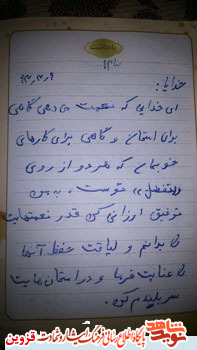 یادداشت
بنام ...
۹۳٫۳٫۹
خدایا:
ای خدایی که نعمت می دهی گاهی
برای امتحان و گاهی برای کارهای
خوبمان که هر دو از روی
تفضل توست، به من
توفیق ارزانی کن قدر نعمتهایت
را بدانم و لیاقت حفظ آنها
را عنایت فرما و در امتحان هایت
سربلندم کن.
نوید شاهد
پایگاه اطلاع رسانی فرهنگ ایثار و شهادت قزوین